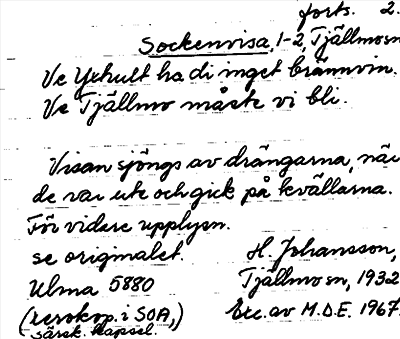 forts. 2.
Sockenvisa, 1-2, Tjällmosn
Ve Yxhult ha di inget brännvin.
Ve Tjällmo måste vi bli.
Visan sjöngs av drängarna, när
de var ute och gick på kvällarna.
För vidare upplysn.
se originalet. H. Johansson,
Ulma 5880 Tjällmo sn, 1932
(xerokop. i SOA,) Exc. av M.D.E. 1967.
särsk. kapsel.